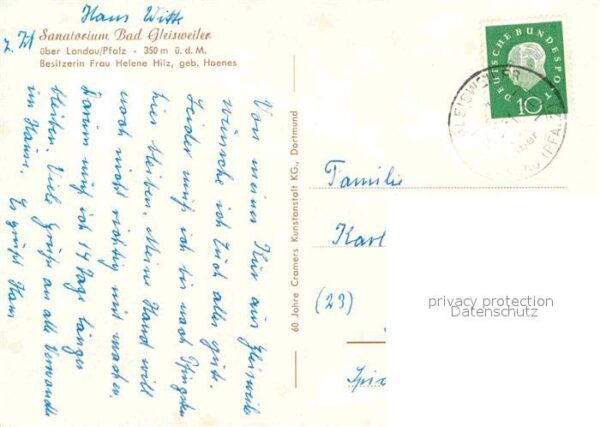 Hans Witte
z. Zt
Sanatorium Bad Gleisweiler
über Landau/Pfalz - 350 m ü. d. M.
Besitzerin Frau Helene Hilz, geb. Hoenes
Von meiner Kur aus Gleisweiler
wünsche ich Euch alles gute.
Leider muß ich bis nach Pfingsten
hier bleiben. Meine Hand will
noch nicht richtig mit machen.
Darum muß ich 14 Tage länger
bleiben. Viele Grüße an alle Verwandte
im Hain.
Es grüßt Hans
60 Jahre Cramers Kunstanstalt KG., Dortmund
DEUTSCHE BUNDESPOST
10
GLEISWEILER
über
(PFALZ)
Familie
Karl
(23)
privacy protection
Datenschutz